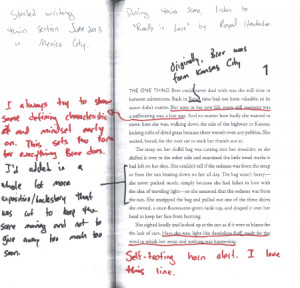 Started writing
this section June 2013
in Mexico City.
During this scene, listen to
"Ready in Love" by Royal Headache
Originally, Beer was
from Kansas City
1
I always try to show
some defining characteristic
and mindset early
on. This sets the tone
for everything Bear does.
I'd added in a
whole lot more
exposition/backstory that
was cut to keep the
scene moving and not to
give away too much too
soon.
THE ONE THING Beer could never deal with was the still time in
between adventures. Back in time had not been valuable, so its
waste didn't matter. But now, in her new life, every still moment was
a suffocating one. And no matter how badly she wanted to
move, here she was, walking down the side of the highway in Kansas,
kicking tufts of dried grass because there weren't even any pebbles. She
waited, bored, for the next car to nick her thumb out at.
The strap on her duffel bag was cutting into her shoulder, so she
shifted it over to the other side and examined the little tread marks it
had left on her skin. She couldn't tell if the redness was from the strap
or from the sun beating down on her all day. The bag wasn't heavy—
she never packed much, simply because she had fallen in love with
the idea of traveling light—so she assumed that the redness was from
the sun. She unzipped the bag and pulled out one of the three shirts
she owned, a once-fluorescent-green tank top, and draped it over her
head to keep her face from burning.
She sighed loudly and looked up at the sun as if it were to blame for
the lack of cars. Here she was, light like dandelion fluff, made for the
wind to whisk her away, and nothing was happening.
Self-tooting horn alert. I love
this line.